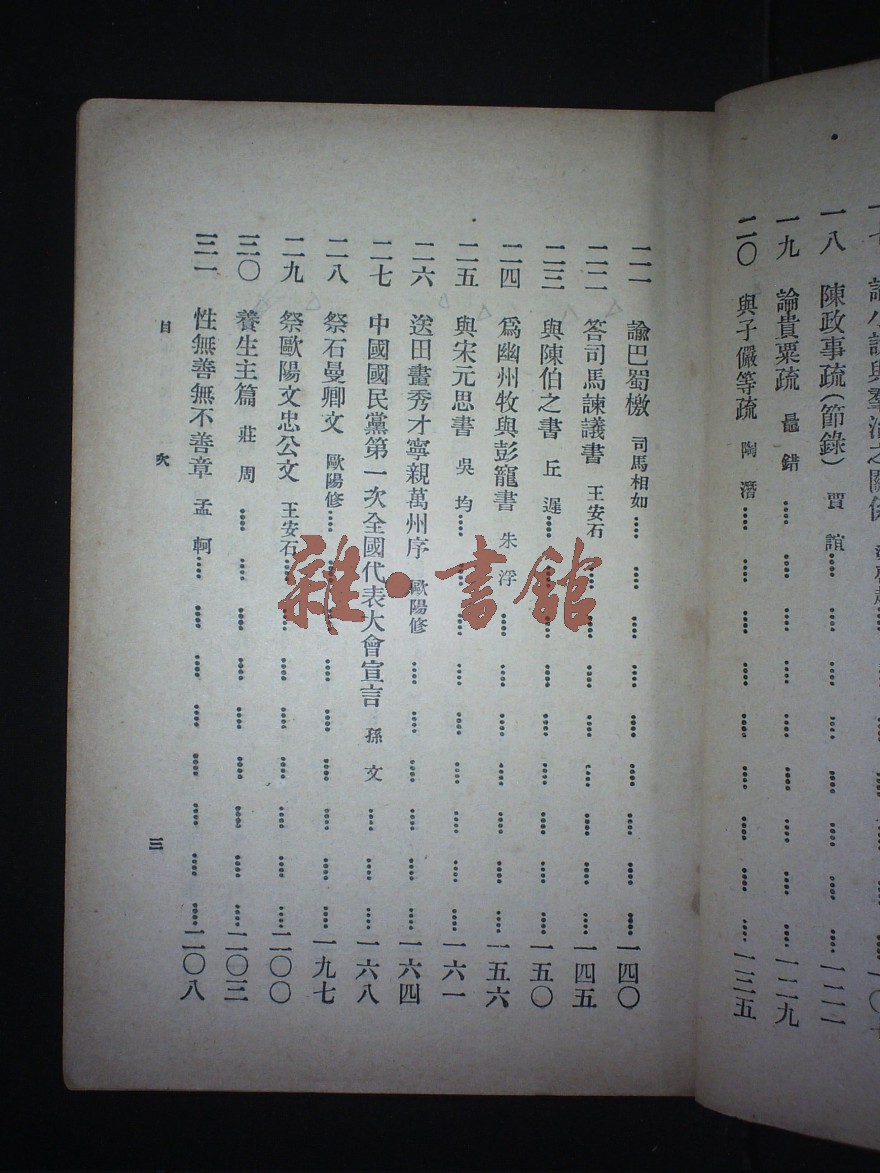 一八 陳政事疏（節錄） 賈誼 一二一
一九 論貴粟疏 鼂錯 一二九
二〇 與子儼等疏 陶潛 一三五
二一 諭巴蜀檄 司馬相如 一四〇
二二 答司馬諫議書 王安石 一四五
二三 與陳伯之書 丘遲 一五〇
二四 爲幽州牧與彭寵書 朱浮 一五六
二五 與宋元思書 吳均 一六一
二六 送田畫秀才寧親萬州序 歐陽修 一六四
二七 中國國民黨第一次全國代表大會宣言 孫文 一六八
二八 祭石曼卿文 歐陽修 一九七
二九 祭歐陽文忠公文 王安石 二〇〇
三〇 養生主篇 莊周 二〇三
三一 性無善無不善章 孟軻 二〇八
目次 三
雜·書館